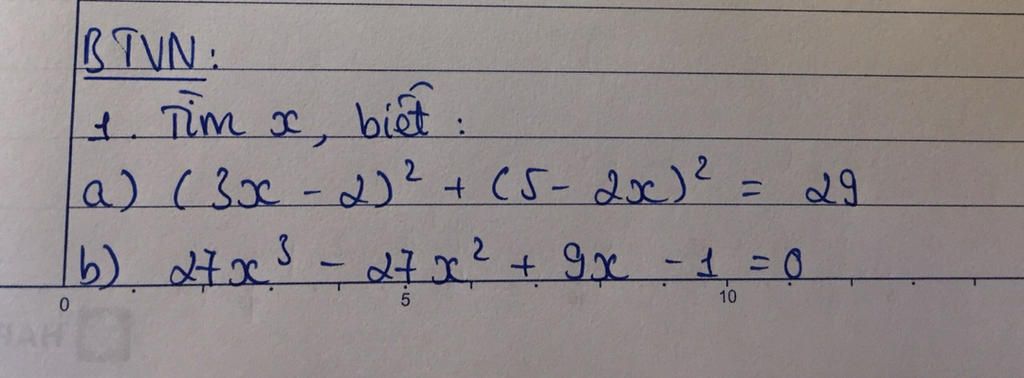 BTVN:
1. Tìm x, biết :
a) (3x - 2)² + (5 - 2x)² = 29
b) 27x³ - 27x² + 9x - 1 = 0
0 5 10